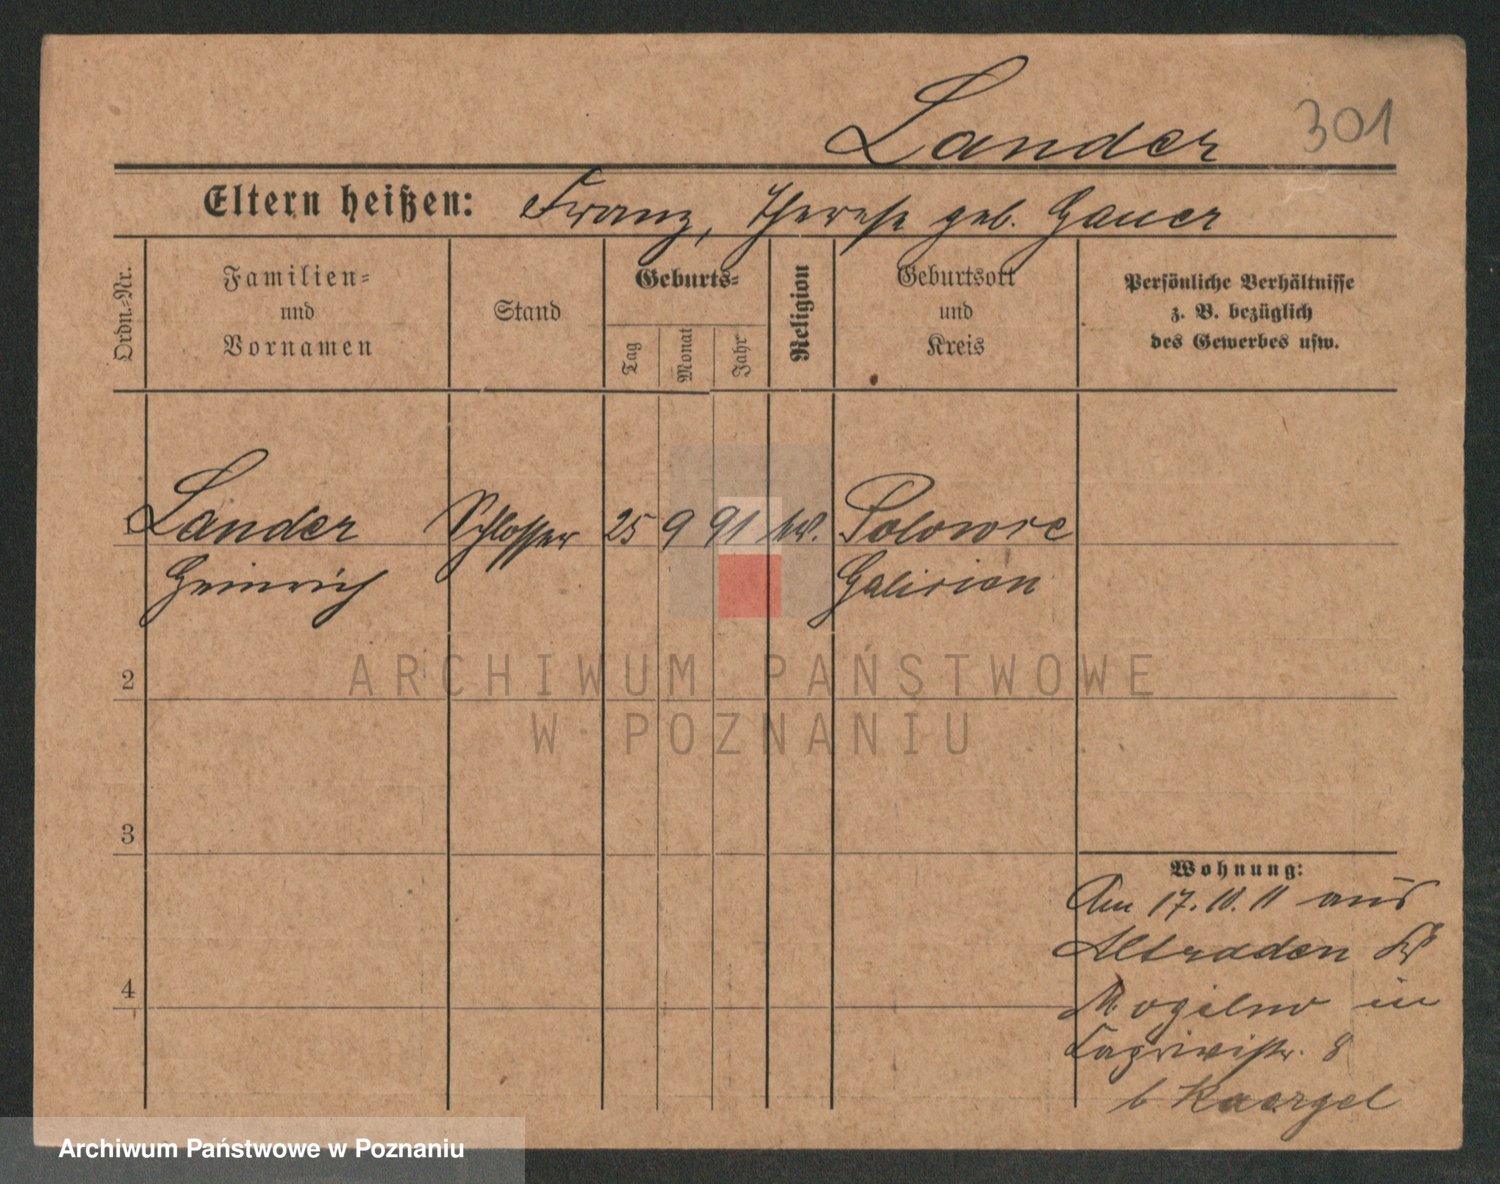 Lander 301
Eltern heißen: Franz, Therese geb. Gauer
Ordn.-Nr.
Familien-
und
Vornamen
Stand
Geburts-
Tag
Monat
Jahr
Religion
Geburtsort
und
Kreis
Persönliche Verhältnisse
z. B. bezüglich
des Gewerbes usw.
1 Lander Schlosser 25 9 91 Polowce
Heinrich Galizien
2
3
4
Wohnung:
Am 17. 10. 11 aus
Altraden
Mogilno in
8
b Kaergel
ARCHIWUM PAŃSTWOWE
W POZNANIU
Archiwum Państwowe w Poznaniu